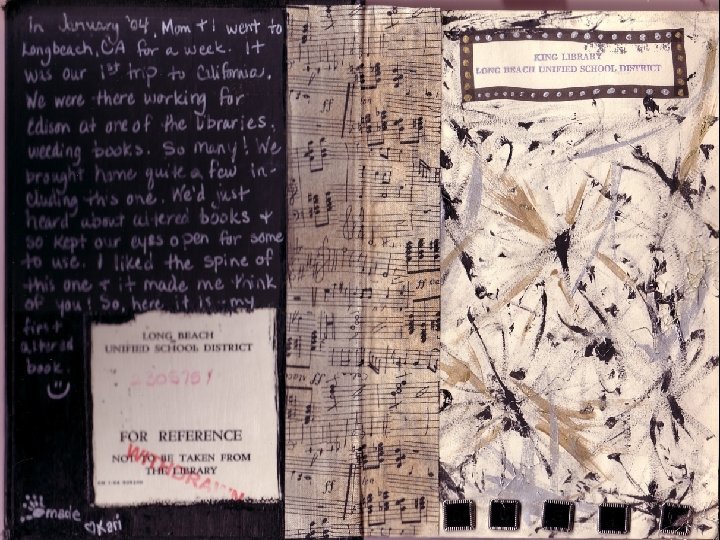 In January '04, Mom & I went to
Longbeach, CA for a week. It
was our 1st trip to California.
We were there working for
Edison at one of the libraries,
weeding books. So many! We
brought home quite a few in-
cluding this one. We'd just
heard about altered books &
so kept our eyes open for some
to use. I liked the spine of
this one & it made me think
of you! So, here it is - my
first
altered
book.
LONG BEACH
UNIFIED SCHOOL DISTRICT
FOR REFERENCE
NOT TO BE TAKEN FROM
THE LIBRARY
WITHDRAWN
made
Kari
KING LIBRARY
LONG BEACH UNIFIED SCHOOL DISTRICT